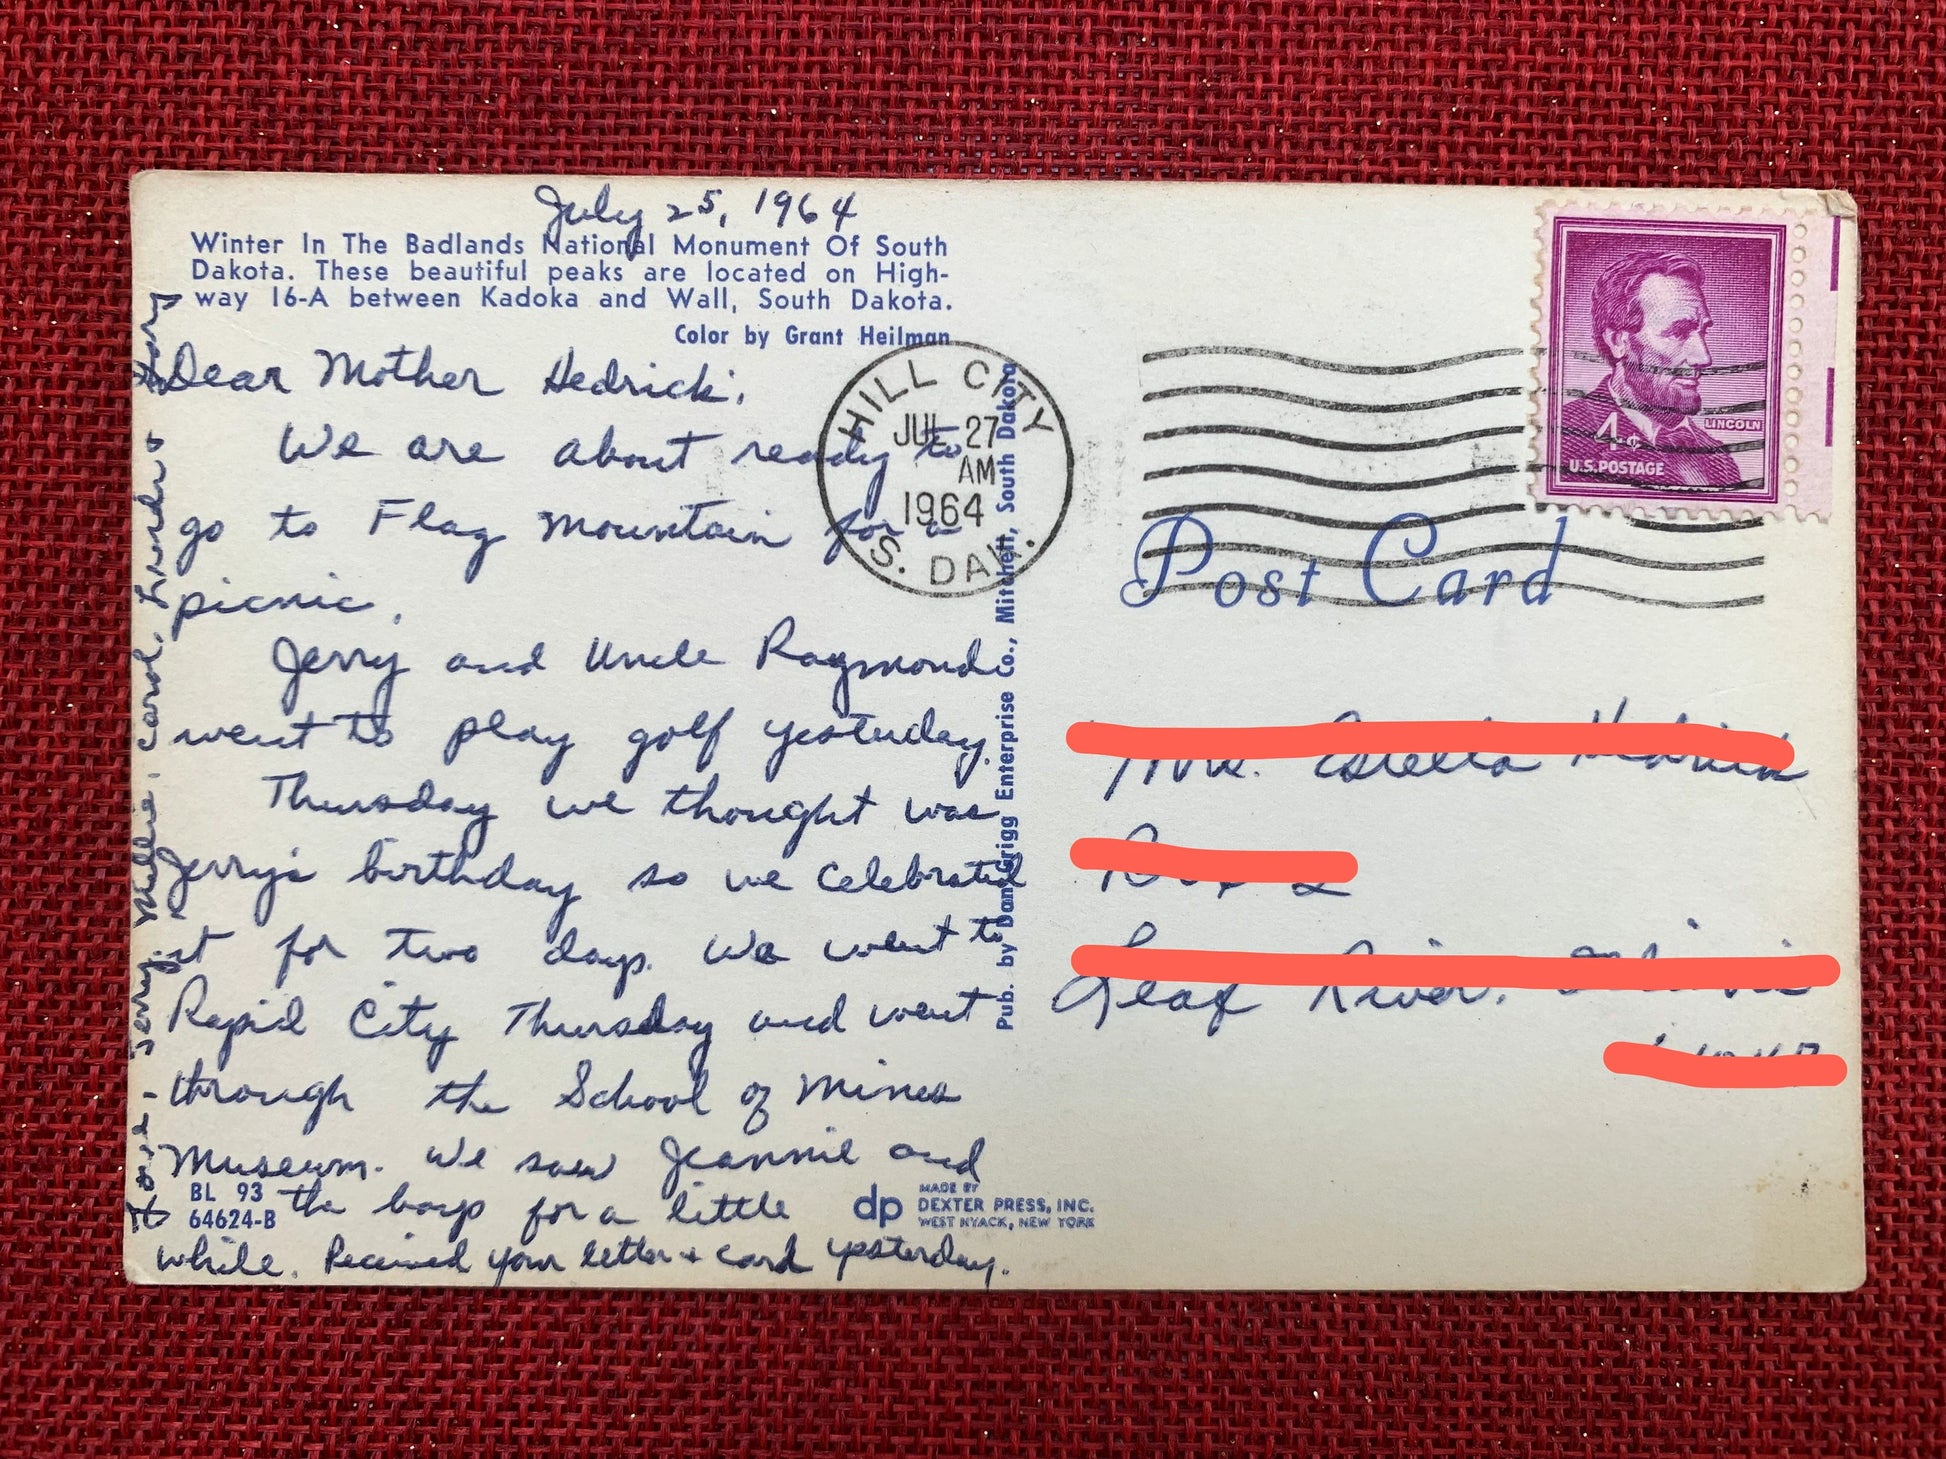 July 25, 1964
Winter In The Badlands National Monument Of South
Dakota. These beautiful peaks are located on High-
way 16-A between Kadoka and Wall, South Dakota.
Color by Grant Heilman
Dear Mother Hedrick,
We are about ready to
go to Flag Mountain for a
picnic.
Jerry and Uncle Raymond
went to play golf yesterday.
Thursday we thought was
Jerry's birthday so we celebrated
it for two days. We went to
Rapid City Thursday and went
through the School of Mines
Museum. We saw Jeannie and
the boys for a little
while. Received your letter + card yesterday.
Love, Jerry, Nellie, Carol, +
BL 93
64624-B
dp MADE BY
DEXTER PRESS, INC.
WEST NYACK, NEW YORK
Pub. by Dan Grigg Enterprise Co., Mitchell, South Dakota
HILL CITY
JUL 27
AM
1964
S. DAK.
4¢
LINCOLN
U.S. POSTAGE
Post Card